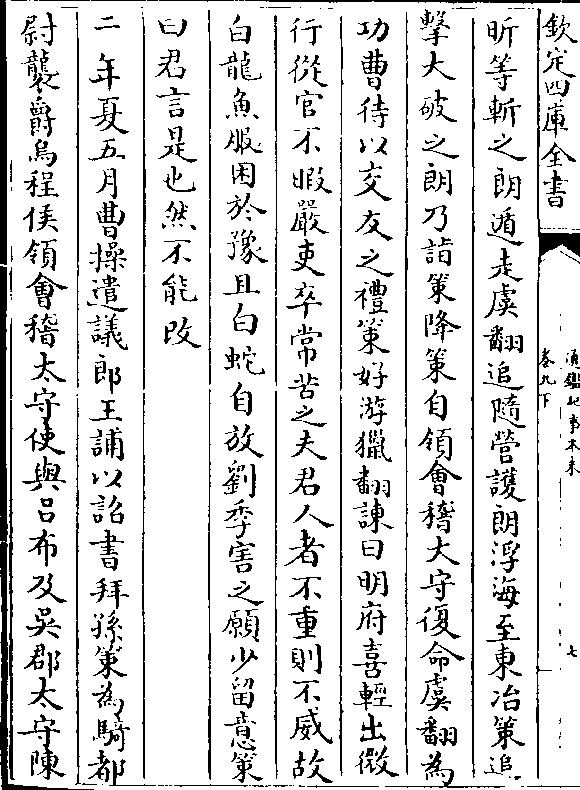 欽定四庫全書
通鑑紀事本末
卷九下
七
昕等斬之朗遁走虞翻追隨營護朗浮海至東冶策追
擊大破之朗乃詣策降策自領會稽大守復命虞翻為
功曹待以交友之禮策好游獵翻諫曰明府喜輕出微
行從官不暇嚴吏卒常苦之夫君人者不重則不威故
白龍魚服困於豫且白蛇自放劉季害之願少留意策
曰君言是也然不能改
二年夏五月曹操遣議郎王誧以詔書拜孫策為騎都
尉襲爵烏程侯領會稽太守使與呂布及吳郡太守陳